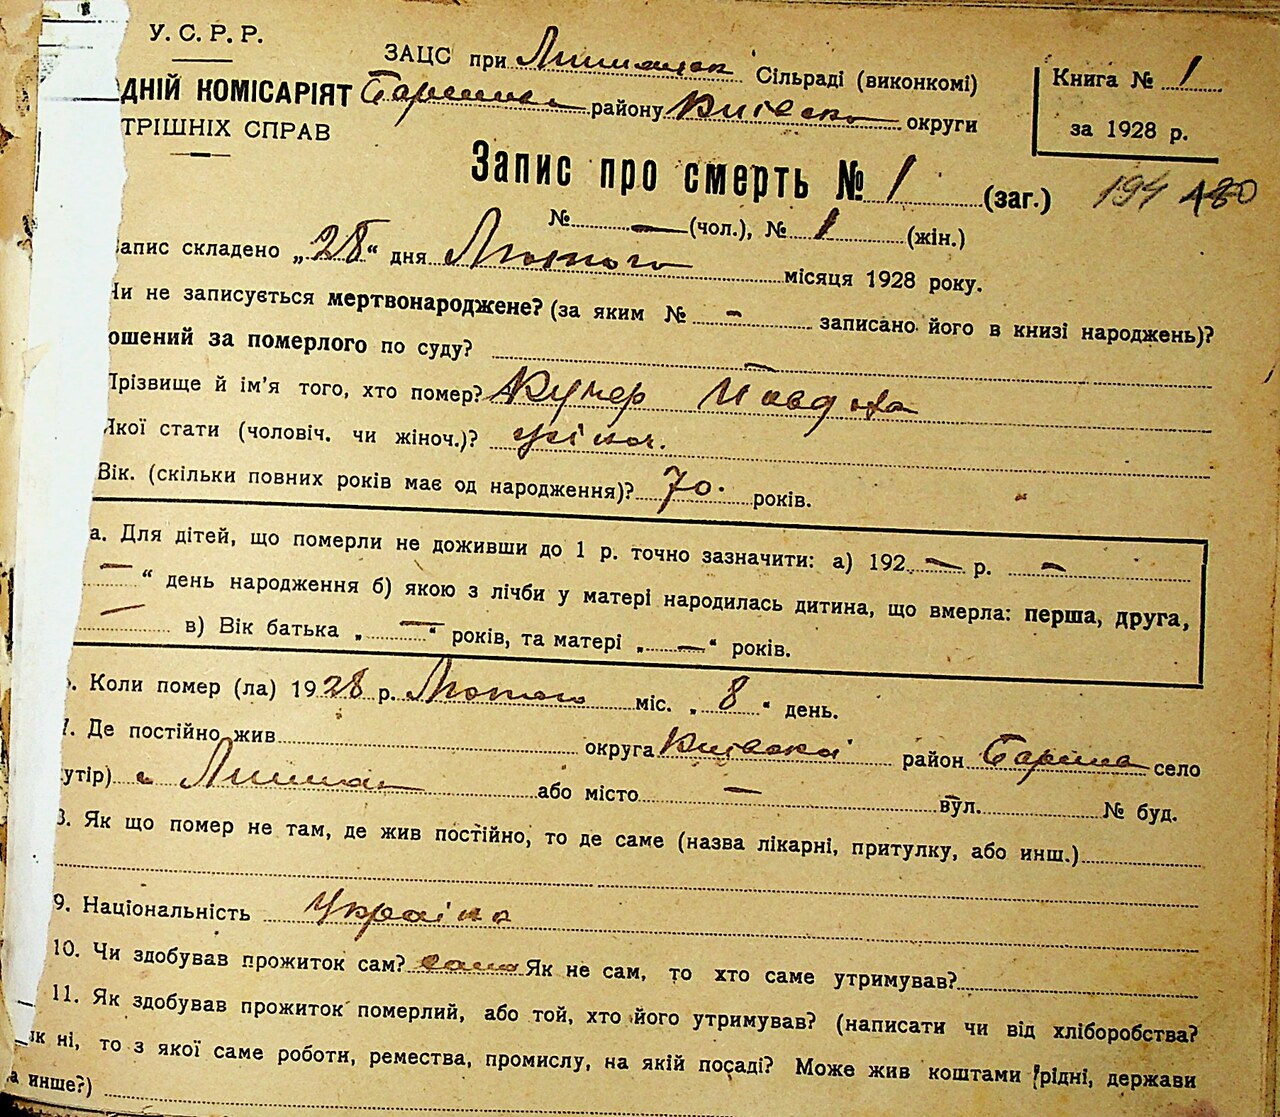 У. С. Р. Р.
ЗАЦС при Сільраді (виконкомі)
ДНІЙ КОМІСАРІЯТ району Київсько округи
ТРІШНІХ СПРАВ
Книга № 1
за 1928 р.
Запис про смерть № 1 (заг.) 194 480
№ — (чол.), № 1 (жін.)
Запис складено „28“ дня Лютого місяця 1928 року.
Чи не записується мертвонароджене? (за яким № - записано його в книзі народжень)?
ошений за померлого по суду?
Прізвище й ім'я того, хто помер? Кучер Йовдоха
Якої стати (чоловіч. чи жіноч.)? жіноч.
Вік. (скільки повних років має од народження)? 70. років.
а. Для дітей, що померли не доживши до 1 р. точно зазначити: а) 192 — р. —
— “ день народження б) якою з лічби у матері народилась дитина, що вмерла: перша, друга,
— в) Вік батька „ — “ років, та матері „ — “ років.
Коли помер (ла) 1928 р. Лютого міс. „ 8 “ день.
7. Де постійно жив округа Київської район село
утір) с або місто — вул. № буд.
8. Як що помер не там, де жив постійно, то де саме (назва лікарні, притулку, або инш.)
9. Національність Україна
10. Чи здобував прожиток сам? сама Як не сам, то хто саме утримував?
11. Як здобував прожиток померлий, або той, хто його утримував? (написати чи від хліборобства?
як ні, то з якої саме роботи, ремества, промислу, на якій посаді? Може жив коштами рідні, держави
а инше?)